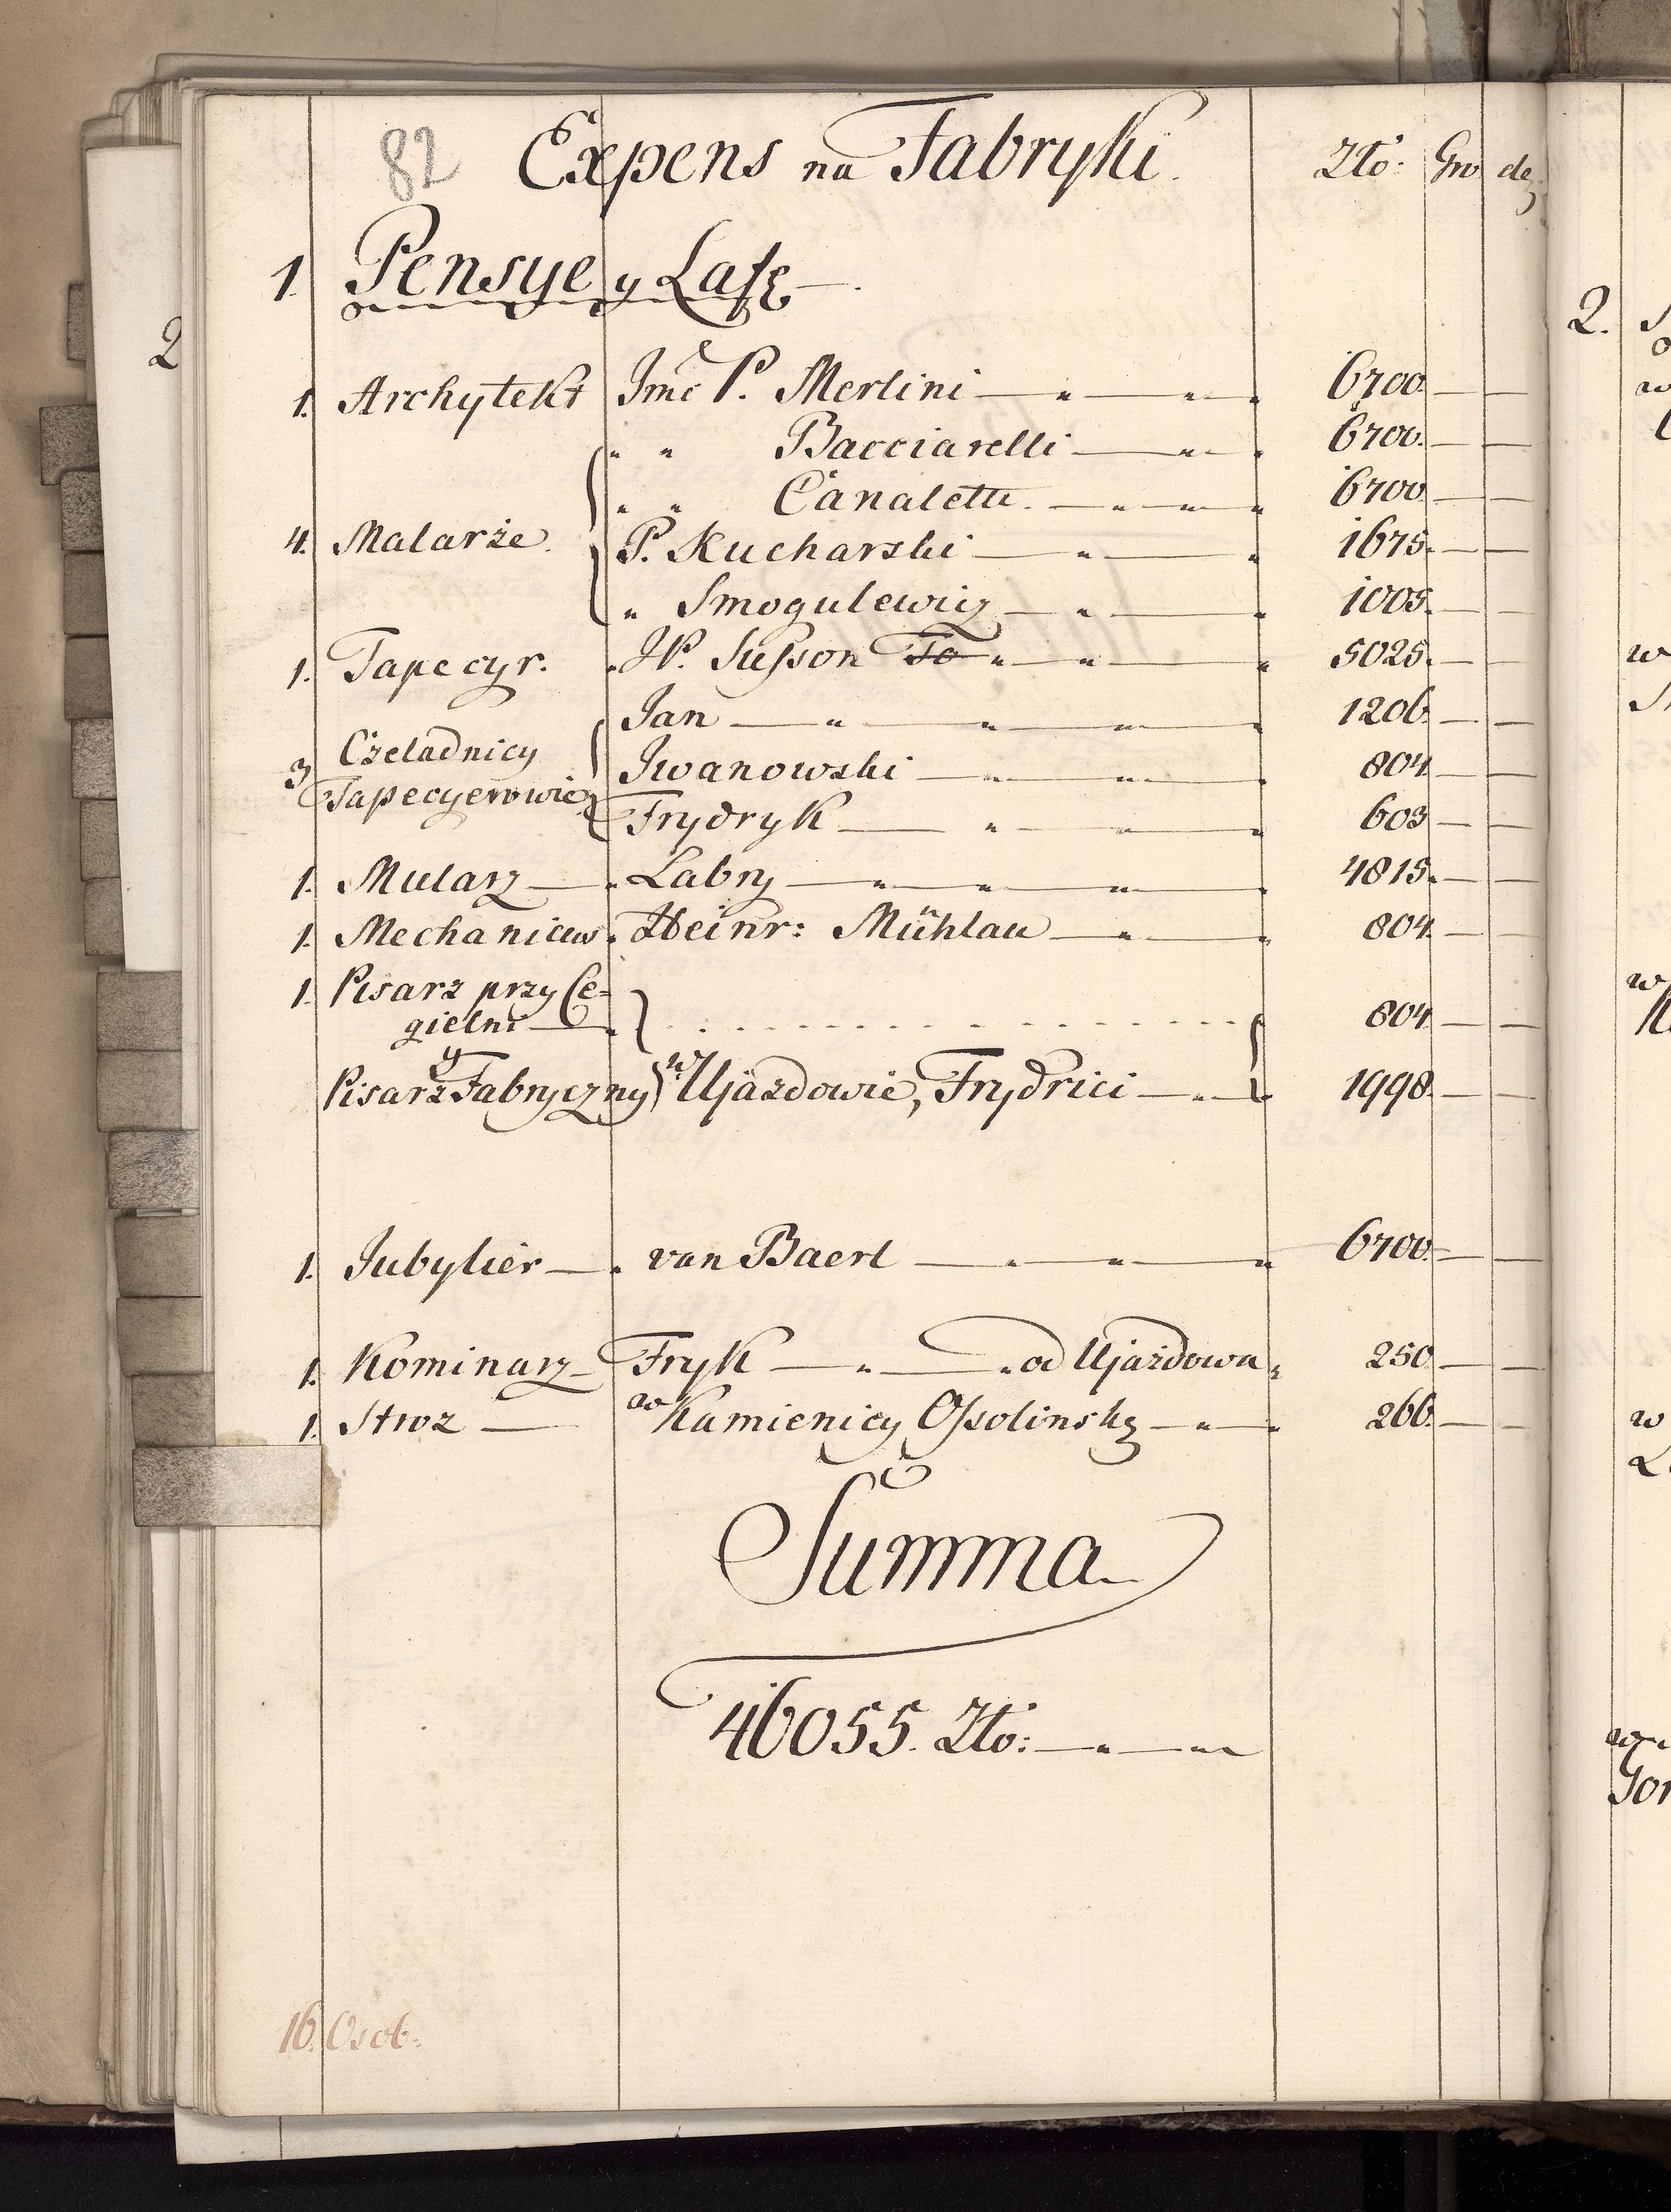 82 Expens na Fabryki. Zto: Gro de:
1. Pensye y Lafę
1. Archytekt Jmć P. Merlini 6700.
" " Bacciarelli 6700.
" " Canalette. 6700.
4. Malarże. P. Kucharski 1675.
" Smogulewicz 1005.
1. Tapecyr. JP. Suſson 5025.
Jan 1206.
3. Czeladnicy Iwanowski 804.
Tapecyerowie Frydryk 603
1. Mularz Labry 4815.
1. Mechanicus Heinr: Mühlau 804.
1. Pisarz przy Ce-
gielni 804.
y
Pisarz Fabryczny w Ujazdowie, Frydrici 1998.
1. Jubylier van Baerl 6700.
1. Kominarz Fryk od Ujazdowa 250.
1. Stroz w Kamienicy Oſsolinskę 266.
Summa
46055. Zto:
16. Osob.
2
2.
w
w
w
w